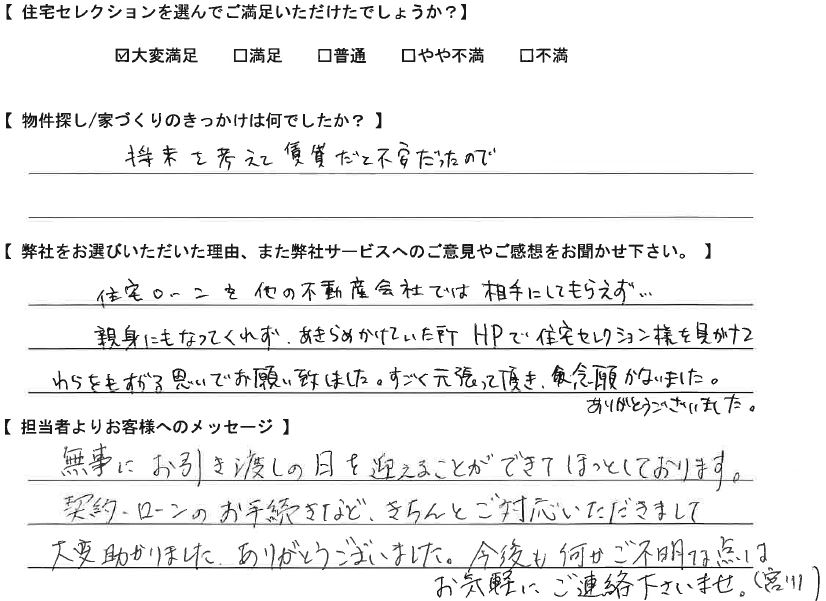 【 住宅セレクションを選んでご満足いただけたでしょうか？】
☑大変満足 □満足 □普通 □やや不満 □不満
【 物件探し/家づくりのきっかけは何でしたか？ 】
将来を考えて賃貸だと不安だったので
【 弊社をお選びいただいた理由、また弊社サービスへのご意見やご感想をお聞かせ下さい。 】
住宅ローンを他の不動産会社では相手にしてもらえず…
親身にもなってくれず、あきらめかけていた所HPで住宅セレクション様を見がけて
わらをもすがる思いでお願い致しました。すごく元張って頂き、無念願かないました。
ありがとうございました。
【 担当者よりお客様へのメッセージ 】
無事にお引き渡しの日を迎えることができてほっとしております。
契約・ローンのお手続きなど、きちんとご対応いただきまして
大変助かりました。ありがとうございました。今後も何かご不明な点は
お気軽にご連絡下さいませ。(宮川)